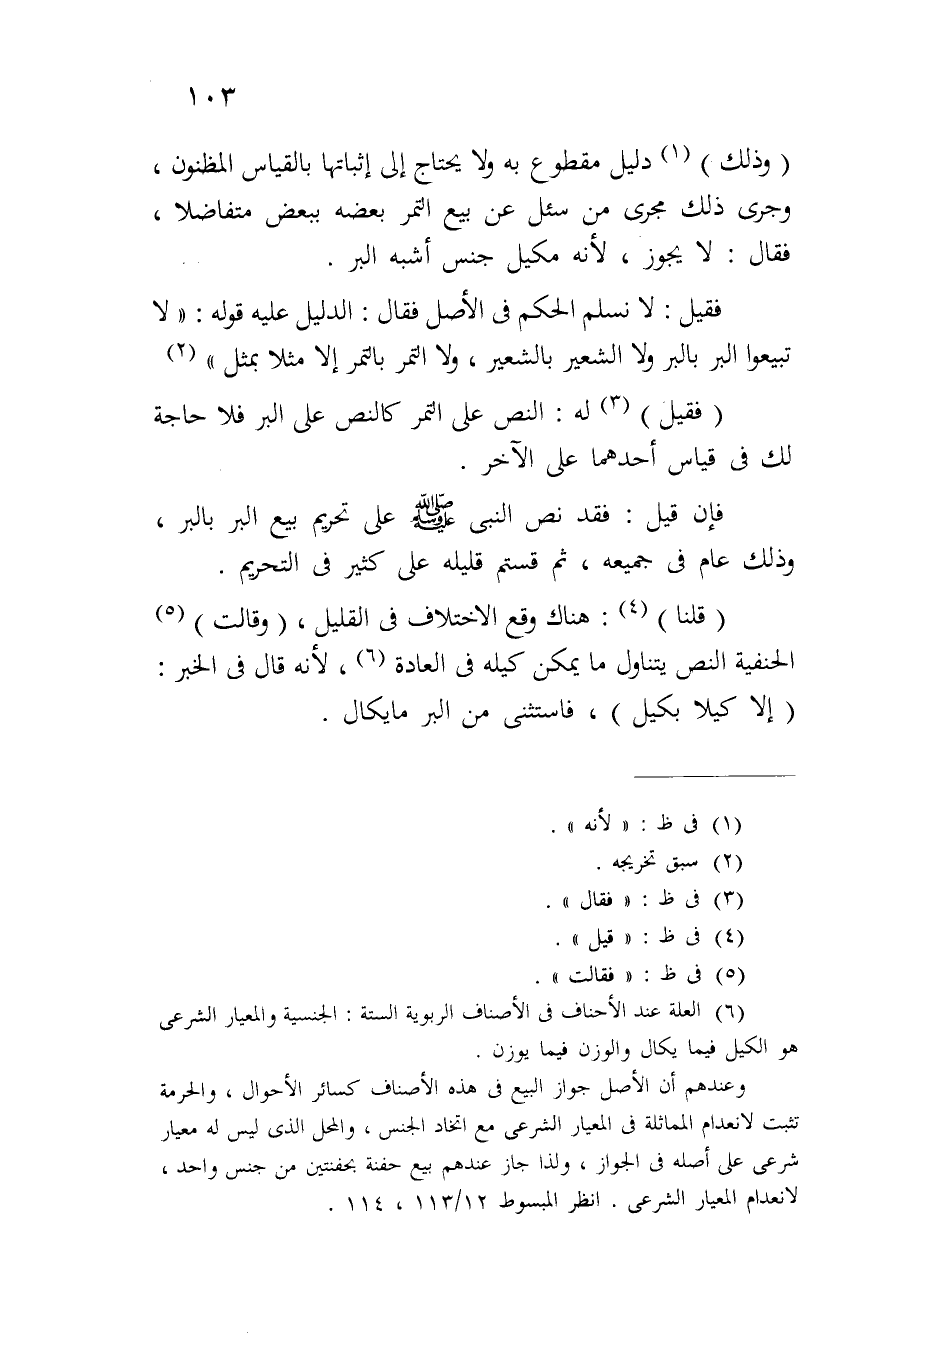 ١٠٣
( وذلك ) (١) دليل مقطوع به ولا يحتاج إلى إثباتها بالقياس المظنون ،
وجرى ذلك مجرى من سئل عن بيع التمر بعضه ببعض متفاضلا ،
فقال : لا يجوز ، لأنه مكيل جنس أشبه البر .
فقيل : لا نسلم الحكم فى الأصل فقال : الدليل عليه قوله : « لا
تبيعوا البر بالبر ولا الشعير بالشعير ، ولا التمر بالتمر إلا مثلا بمثل » (٢)
( فقيل ) (٣) له : النص على التمر كالنص على البر فلا حاجة
لك فى قياس أحدهما على الآخر .
فإن قيل : فقد نص النبى ﷺ على تحريم بيع البر بالبر ،
وذلك عام فى جميعه ، ثم قستم قليله على كثير فى التحريم .
( قلنا ) (٤) : هناك وقع الاختلاف فى القليل ، ( وقالت ) (٥)
الحنفية النص يتناول ما يمكن كيله فى العادة (٦) ، لأنه قال فى الخبر :
( إلا كيلا بكيل ) ، فاستثنى من البر مايكال .
(١) فى ظ : « لأنه » .
(٢) سبق تخريجه .
(٣) فى ظ : « فقال » .
(٤) فى ظ : « قيل » .
(٥) فى ظ : « فقالت » .
(٦) العلة عند الأحناف فى الأصناف الربوية الستة : الجنسية والمعيار الشرعى
هو الكيل فيما يكال والوزن فيما يوزن .
وعندهم أن الأصل جواز البيع فى هذه الأصناف كسائر الأحوال ، والحرمة
تثبت لانعدام المماثلة فى المعيار الشرعى مع اتخاد الجنس ، والمحل الذى ليس له معيار
شرعى على أصله فى الجواز ، ولذا جاز عندهم بيع حفنة بحفنتين من جنس واحد ،
لانعدام المعيار الشرعى . انظر المبسوط ١١٣/١٢ ، ١١٤ .